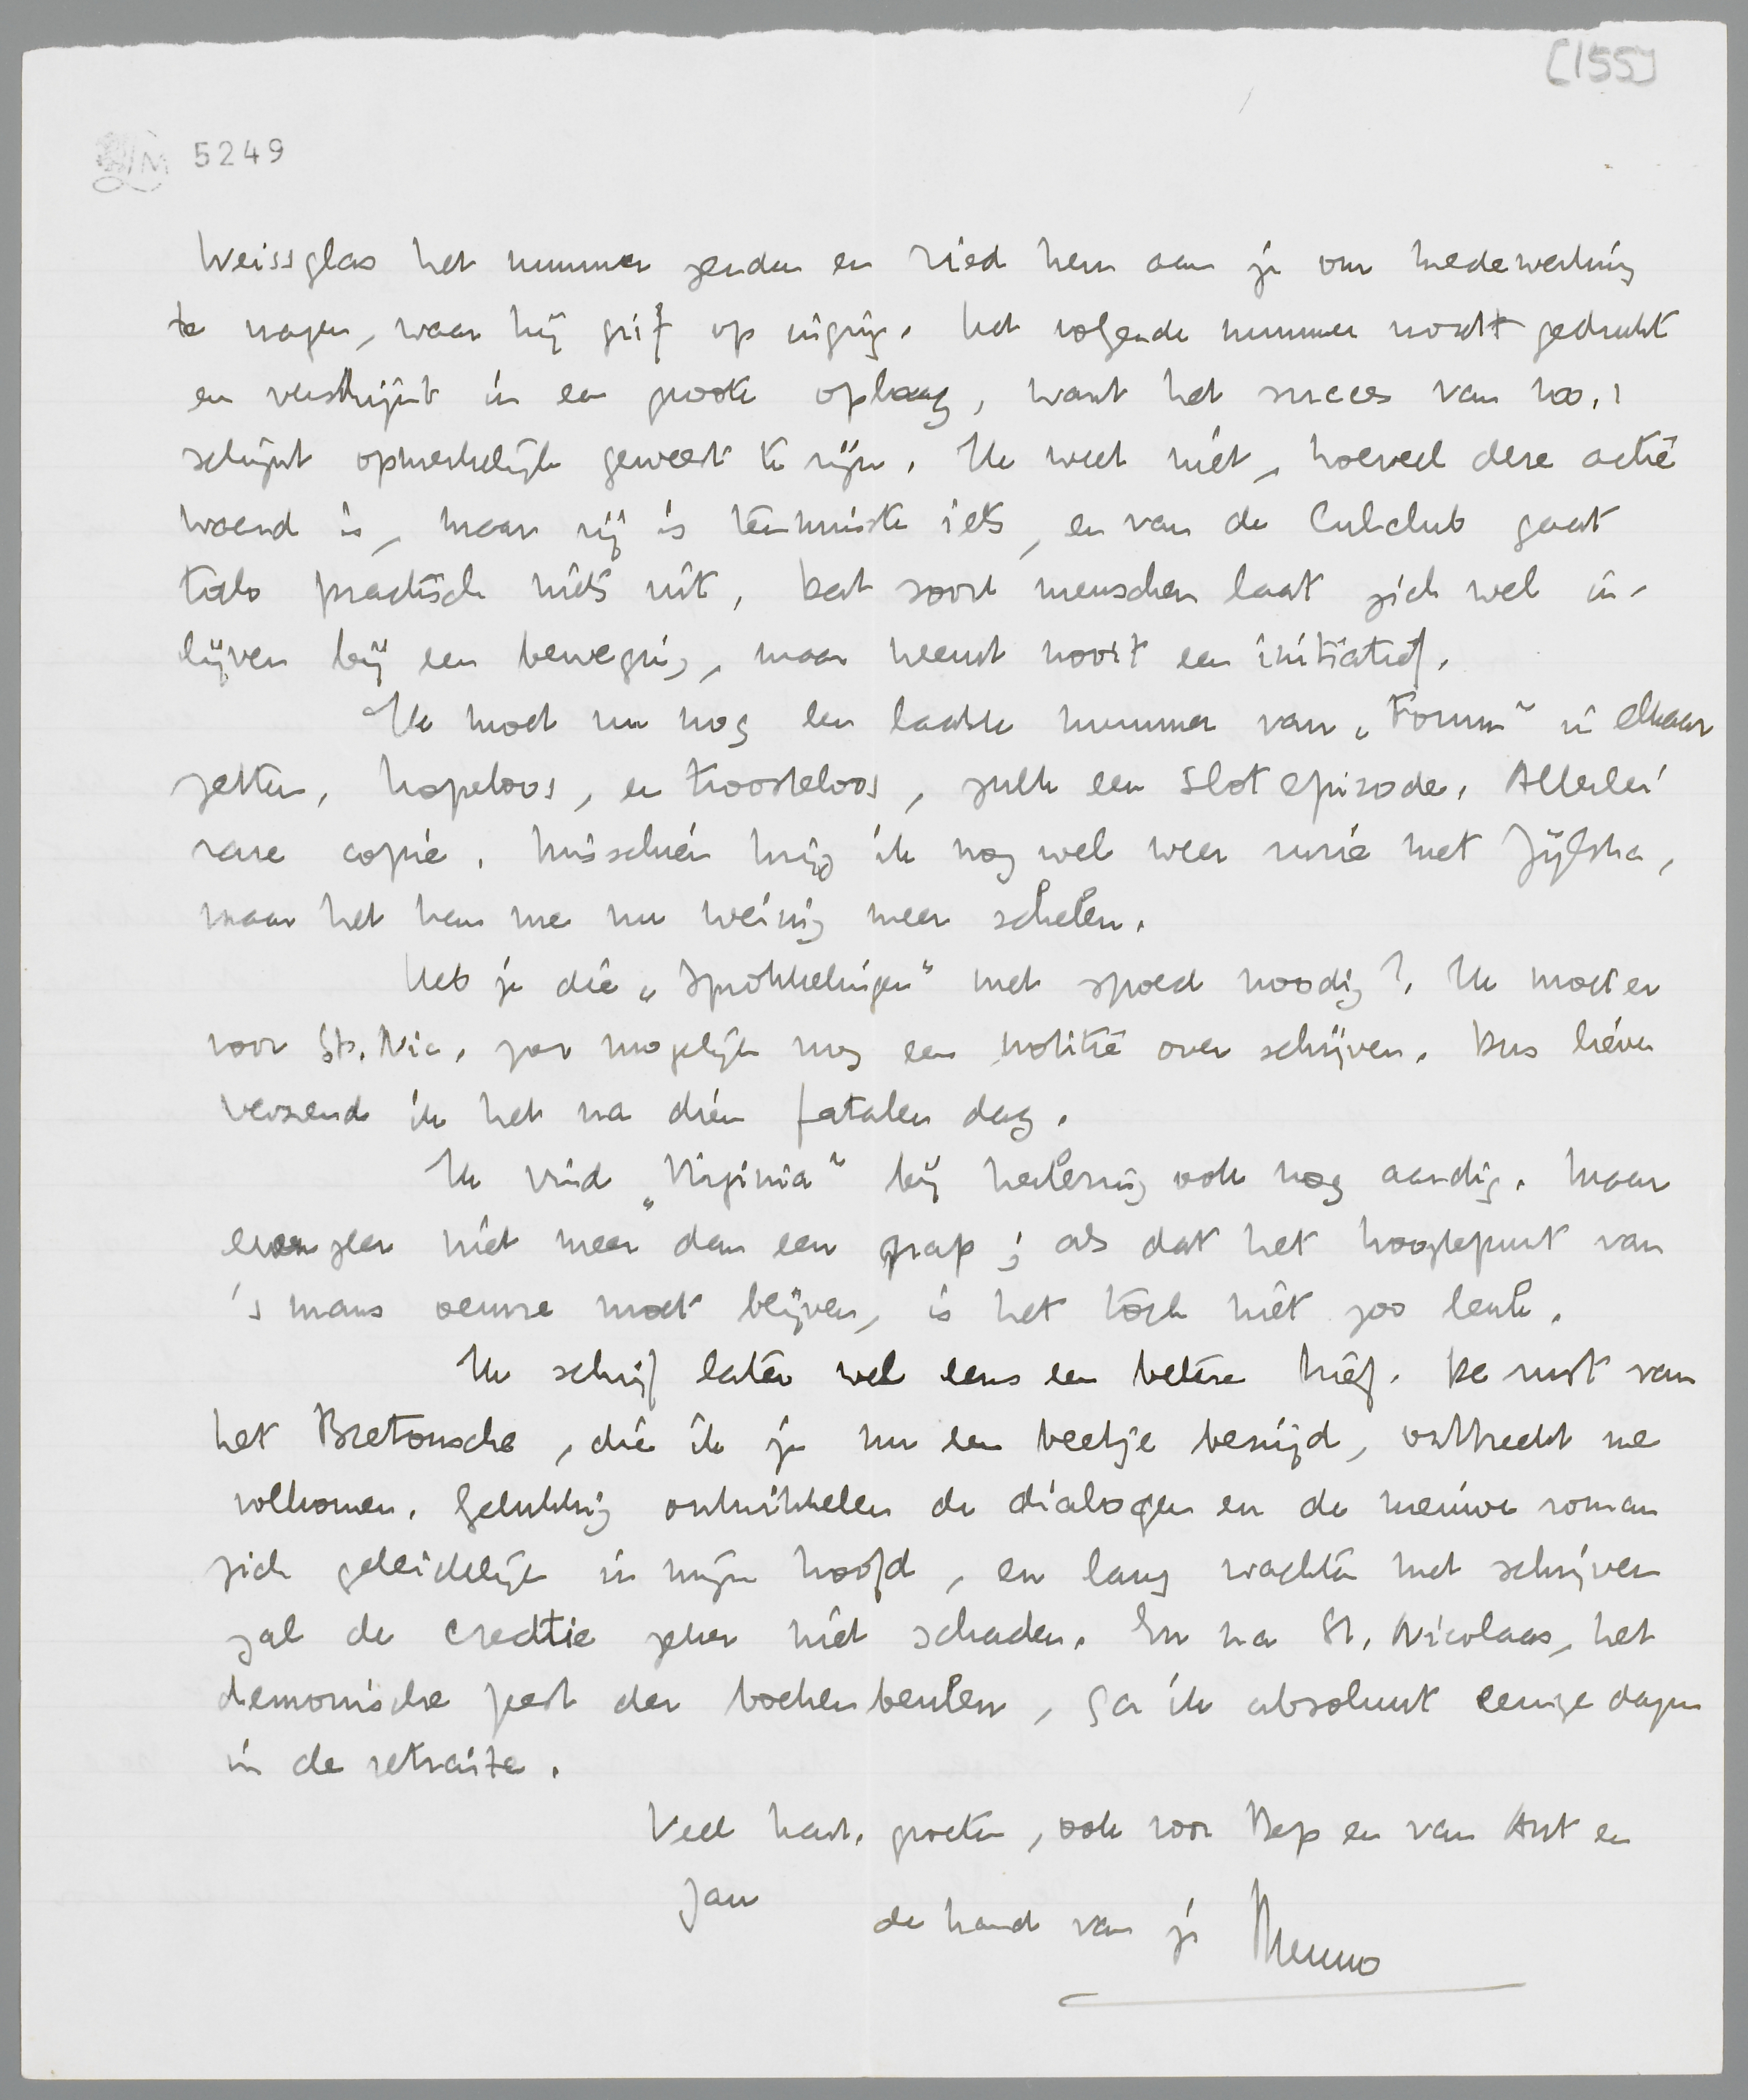 [155]
5249
Weissglas het nummer zenden en ried hem aan je om medewerking
te vragen, waar hij grif op inging. Het volgende nummer wordt gedrukt
en verschijnt in een groote oplaag, want het succes van no. 1
schijnt opmerkelijk geweest te zijn. Ik weet niet, hoeveel deze actie
waard is, maar zij is tenminste iets, en van de Culclub gaat
toto practisch niets uit. Dat soort menschen laat zich wel in-
lijven bij een beweging, maar neemt nooit een initiatief.
Ik moet nu nog een laatste nummer van „Forum” in elkaar
zetten, hopeloos, en troosteloos, zulk een slotepisode. Allerlei
rare copie. Misschien krijg ik nog wel weer ruzie met Zijlstra,
maar het kan me nu weinig meer schelen.
Heb je die „Sprokkelingen” met spoed noodig? Ik moet er
voor St. Nic. zoo mogelijk nog een notitie over schrijven. Dus liever
verzend ik het na dien fatalen dag.
Ik vind „Virginia” bij herlezing ook nog aardig. Maar
evenzeer niet meer dan een grap; als dat het hoogtepunt van
's mans oeuvre moet blijven, is het toch niet zoo leuk.
Ik schrijf later wel eens een betere brief. De rust van
het Bretonsche, die ik je nu een beetje benijd, ontbreekt me
volkomen. Gelukkig ontwikkelen de dialogen en de nieuwe roman
zich geleidelijk in mijn hoofd, en lang wachten met schrijven
zal de creatie zeker niet schaden. En na St. Nicolaas, het
demonische feest der boekenbeulen, ga ik absoluut eenige dagen
in de retraite.
Veel hart. groeten, ook voor Bep en van Ant en
Jan
de hand van je Menno